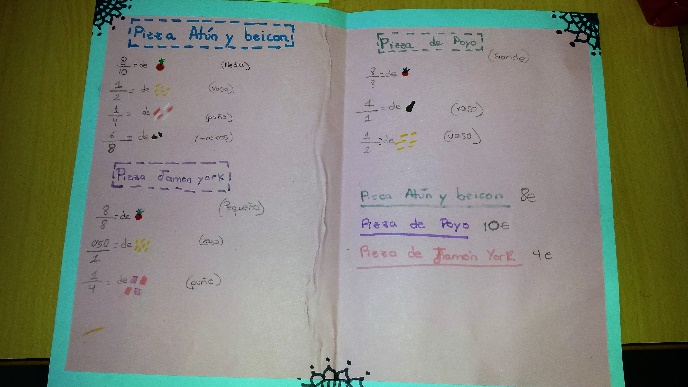 Pizza Atún y beicon
8/10 = de
1/2 = de (vaso)
1/4 = de (puño)
6/8 = de
Pizza Jamon york
(Pequeña)
8/8 = de
vaso/1 = de (vaso)
1/4 = de (puño)
Pizza de Poyo
(Grande)
8/? = de
1/1 = de (vaso)
1/2 = de (vaso)
Pizza Atún y beicon 8€
Pizza de Poyo 10€
Pizza de Jamon York 4€